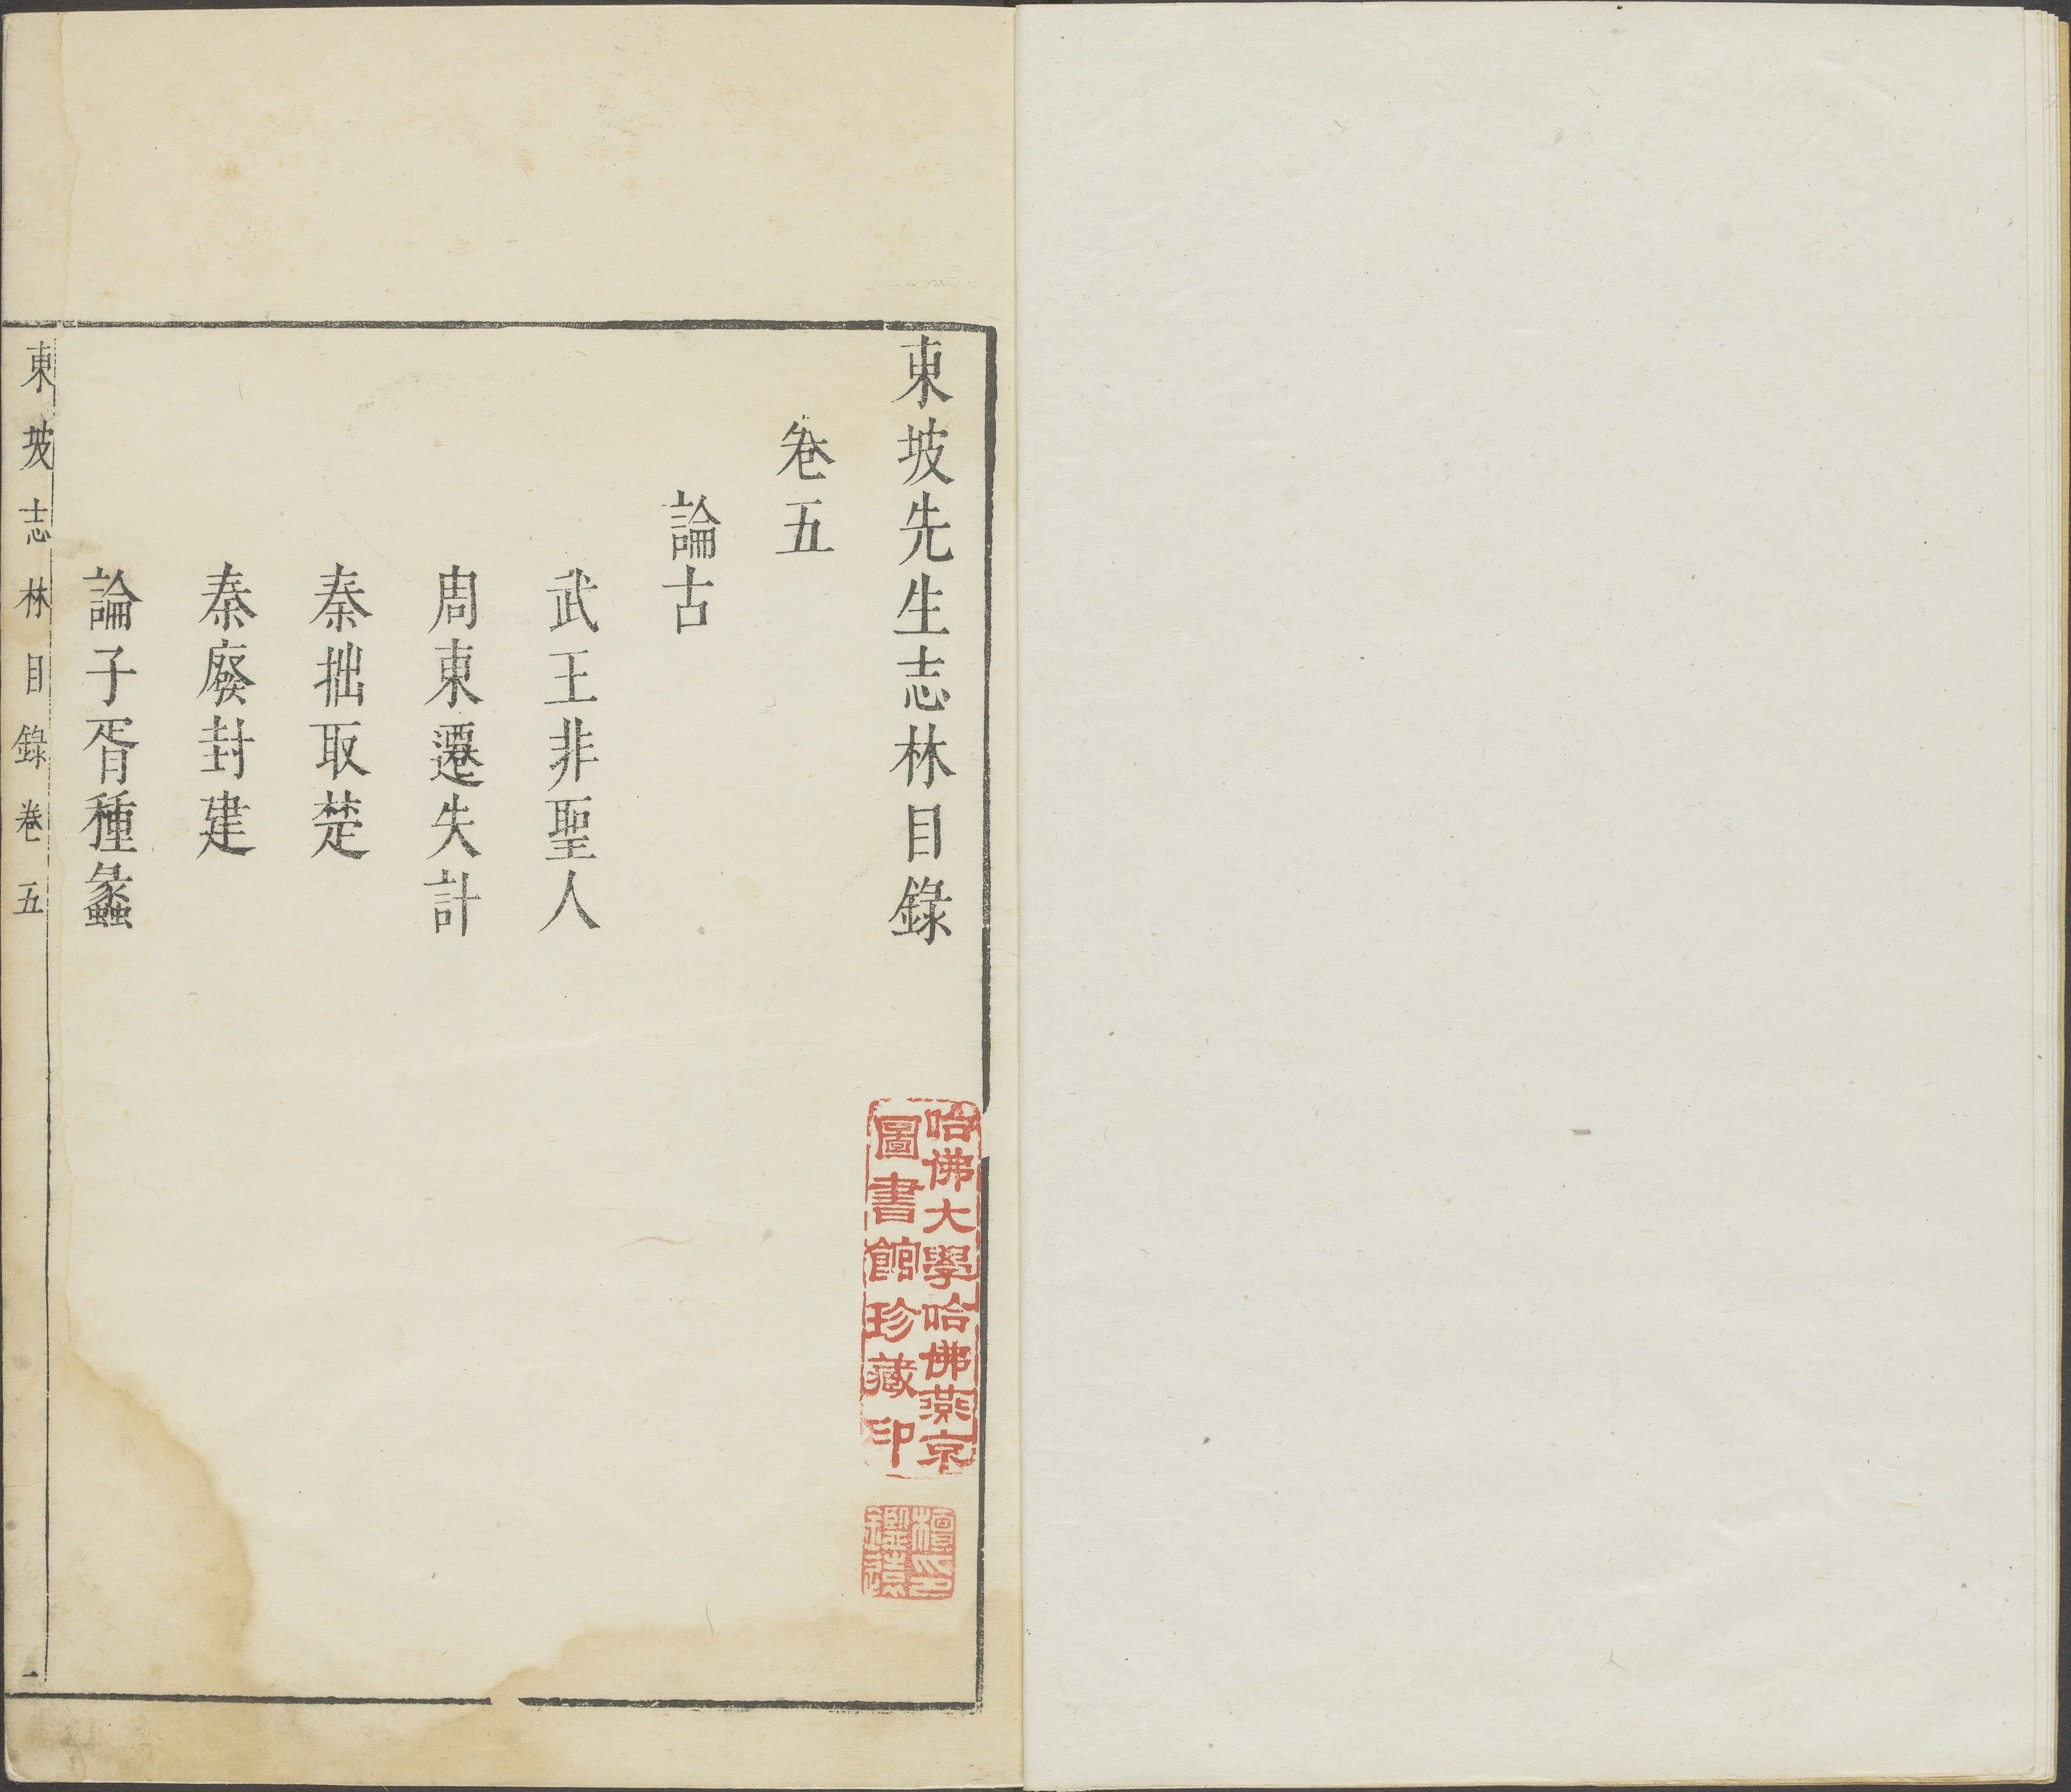 東坡先生志林目錄
卷五
論古
武王非聖人
周東遷失計
秦拙取楚
秦廢封建
論子胥種蠡
東坡志林目錄卷五
一
哈佛大學哈佛燕京
圖書館珍藏印